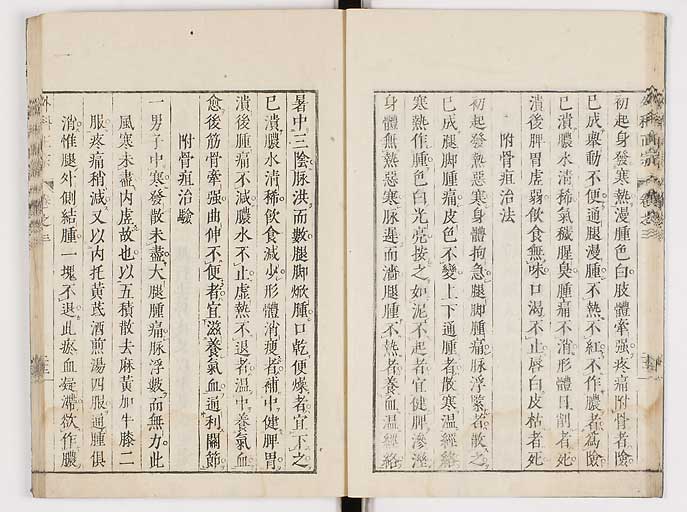 初起身發寒熱漫腫色白肢體牽强疼痛附骨者險
已成舉動不便通腿漫腫不熱不紅不作膿者爲險
已潰膿水清稀氣穢腥臭腫痛不消形體日削者死
潰後脾胃虛弱飲食無味口渴不止唇白皮枯者死
附骨疽治法
初起發熱惡寒身體拘急腿脚腫痛脉浮緊者散之
已成腿脚腫痛皮色不變上下通腫者散寒温經絡
寒熱作腫色白光亮按之如泥不起者宜健脾滲溼
身體無熱惡寒脉遲而濇腿腫不熱者養血温經絡
暑中三陰脉洪而數腿脚焮腫口乾便燥者宜下之
已潰膿水清稀飲食減少形體消瘦者補中健脾胃
潰後腫痛不減膿水不止虛熱不退者温中養氣血
愈後筋骨牽强曲伸不便者宜滋養氣血通利關節
附骨疽治驗
一男子中寒發散未盡大腿腫痛脉浮數而無力此
風寒未盡内虛故也以五積散去麻黄加牛膝二
服疼痛稍減又以内托黄芪酒煎湯四服通腫俱
消惟腿外側結腫一塊不退此瘀血凝滯欲作膿